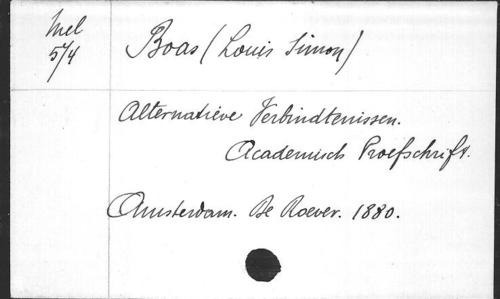 Mel
5/4
Boas (Louis Simon)
Alternatieve Verbindtenissen.
Academisch Proefschrift.
Amsterdam. De Roever. 1880.